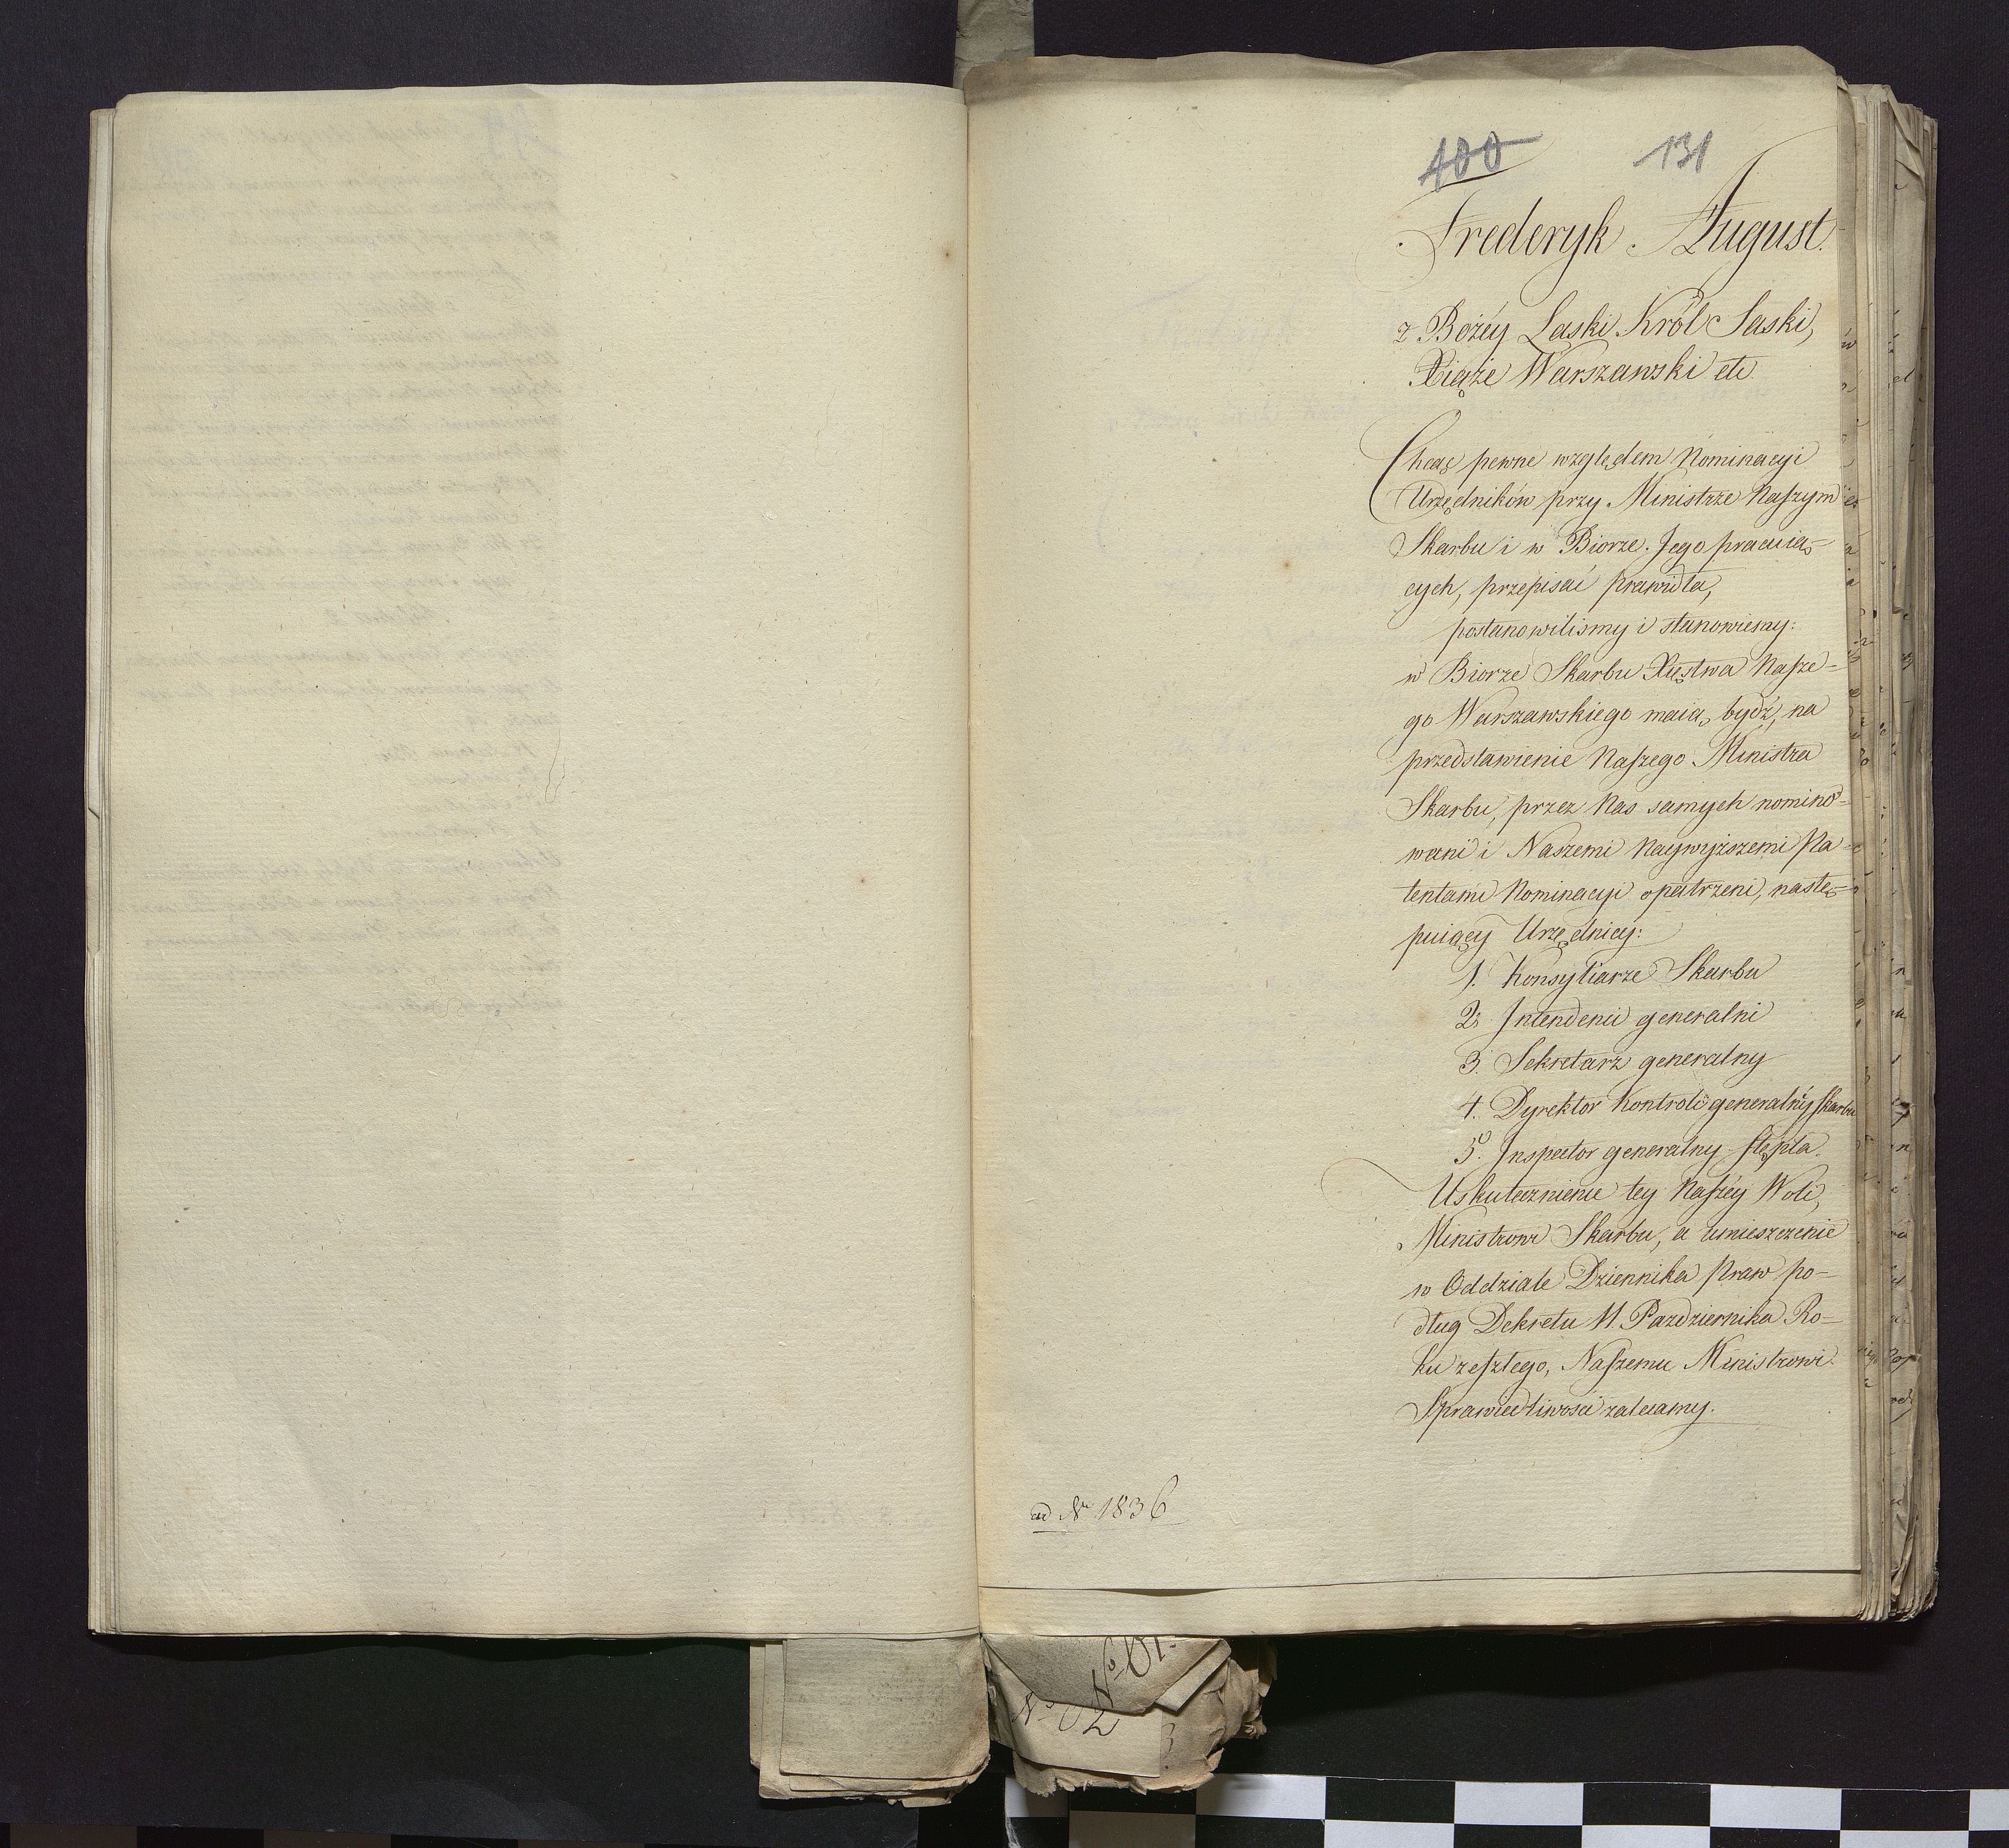 400 131
Frederyk August.
z Bożéy Łaski Król Saski,
Xiąże Warszawski etc.
Chcąc pewne względem Nominacyi
Urzędników przy Ministrze Naszym
Skarbu i w Biorze Jego pracuią-
cych, przepisać prawidła,
postanowiliśmy i stanowiemy:
w Biorze Skarbu Xięstwa Nasze-
go Warszawskiego maią bydź, na
przedstawienie Naszego Ministra
Skarbu, przez Nas samych nomino-
wani i Naszemi Naywyższemi Pa-
tentami Nominacyi opatrzeni, nastę-
puiący Urzędnicy:
1. Konsyliarze Skarbu
2. Intendenci generalni
3. Sekretarz generalny
4. Dyrektor Kontroli generalnéy Skarbu
5. Inspector generalny stępla.
Uskutecznienie tey Naszéy Woli,
Ministrowi Skarbu, a umieszczenie
w Oddziale Dziennika Praw po-
dług Dekretu 11. Pazdziernika Ro-
ku zeszłego, Naszemu Ministrowi
Sprawiedliwości zalecamy.
ad Nr 1836